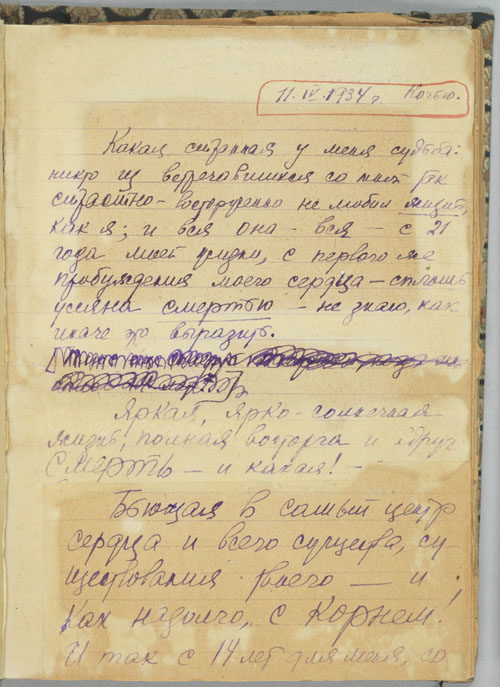 11. IV. 1934 г. Ночью.
Какая странная у меня судьба:
никто из встречавшихся со мной так
страстно-восторженно не любил жизнь,
как я; и вся она - вся - с 21
года моей жизни, с первого же
пробуждения моего сердца - сплошь
усеяна смертью - не знаю, как
иначе это выразить.
Яркая, ярко-солнечная
жизнь, полная восторга и вдруг
Смерть - и какая! -
Бьющая в самый центр
сердца и всего существа, су-
ществования твоего - и
как надолго, с Корнем!
И так с 14 лет для меня, со